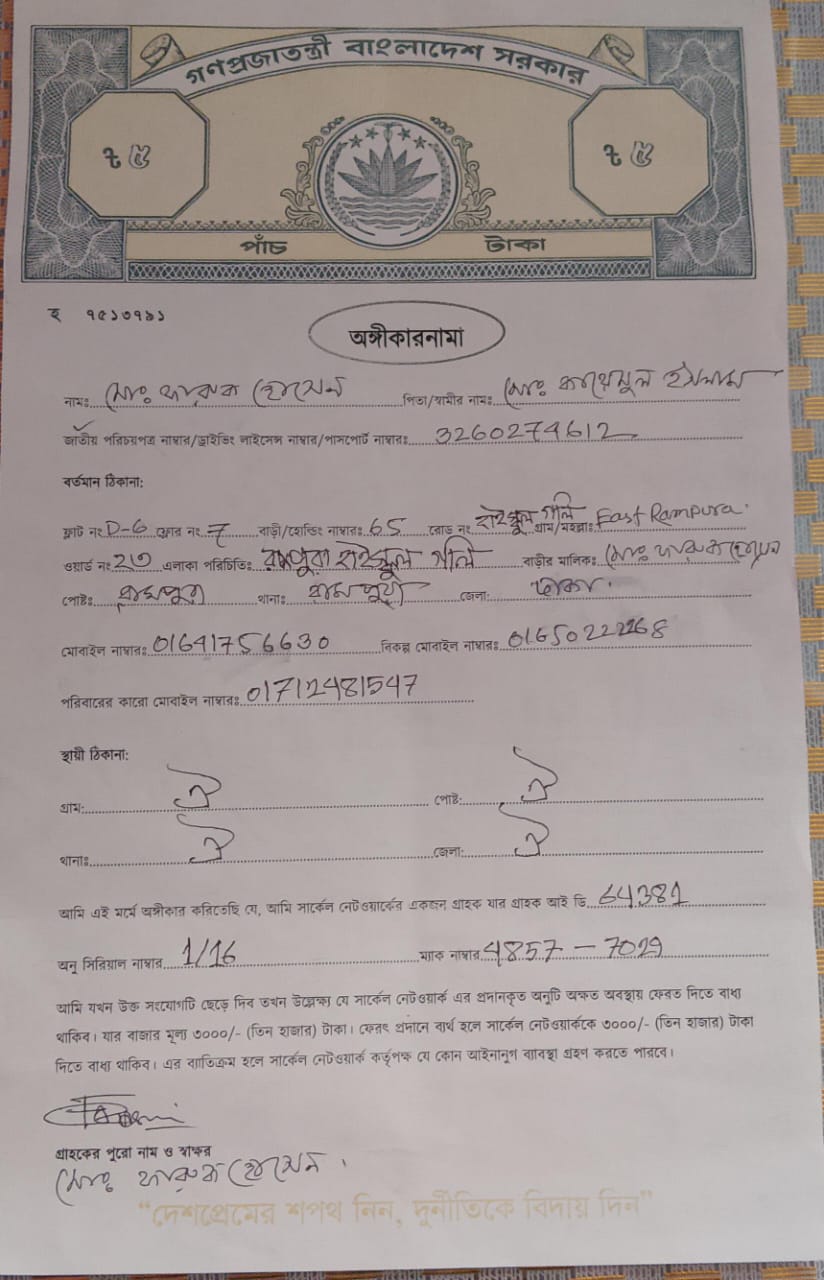 গণপ্রজাতন্ত্রী বাংলাদেশ সরকার
ট ৫ ট ৫
পাঁচ টাকা
হ ৭৫১৩৭৯১
অঙ্গীকারনামা
নামঃ মোঃ ফারুক হোসেন পিতা/স্বামীর নামঃ মোঃ ইসলাম
জাতীয় পরিচয়পত্র নাম্বার/ড্রাইভিং লাইসেন্স নাম্বার/পাসপোর্ট নাম্বারঃ 3260274612
বর্তমান ঠিকানা:
ফ্লাট নং D-6 ফ্লোর নং 7 বাড়ী/হোল্ডিং নাম্বারঃ 65 রোড নং হাইস্কুল গলি গ্রাম/মহল্লাঃ East Rampura.
ওয়ার্ড নং 23 এলাকা পরিচিতিঃ রামপুরা হাইস্কুল গলি বাড়ীর মালিকঃ মোঃ ফারুক হোসেন
পোষ্টঃ রামপুরা থানাঃ রামপুরা জেলা: ঢাকা.
মোবাইল নাম্বারঃ 01641756630 বিকল্প মোবাইল নাম্বারঃ 01650222268
পরিবারের কারো মোবাইল নাম্বারঃ 01712481547
স্থায়ী ঠিকানা:
গ্রাম: ঐ পোষ্ট: ঐ
থানাঃ ঐ জেলা: ঐ
আমি এই মর্মে অঙ্গীকার করিতেছি যে, আমি সার্কেল নেটওয়ার্কের একজন গ্রাহক যার গ্রাহক আই ডি 64381
অনু সিরিয়াল নাম্বার 1/16 ম্যাক নাম্বার 4857 - 7029
আমি যখন উক্ত সংযোগটি ছেড়ে দিব তখন উল্লেক্ষ্য যে সার্কেল নেটওয়ার্ক এর প্রদানকৃত অনুটি অক্ষত অবস্থায় ফেরত দিতে বাধ্য
থাকিব। যার বাজার মূল্য ৩০০০/- (তিন হাজার) টাকা। ফেরৎ প্রদানে ব্যর্থ হলে সার্কেল নেটওয়ার্ককে ৩০০০/- (তিন হাজার) টাকা
দিতে বাধ্য থাকিব। এর ব্যতিক্রম হলে সার্কেল নেটওয়ার্ক কর্তৃপক্ষ যে কোন আইনানুগ ব্যাবস্থা গ্রহণ করতে পারবে।
গ্রাহকের পুরো নাম ও স্বাক্ষর
মোঃ ফারুক হোসেন।
“দেশপ্রেমের শপথ নিন, দুর্নীতিকে বিদায় দিন”